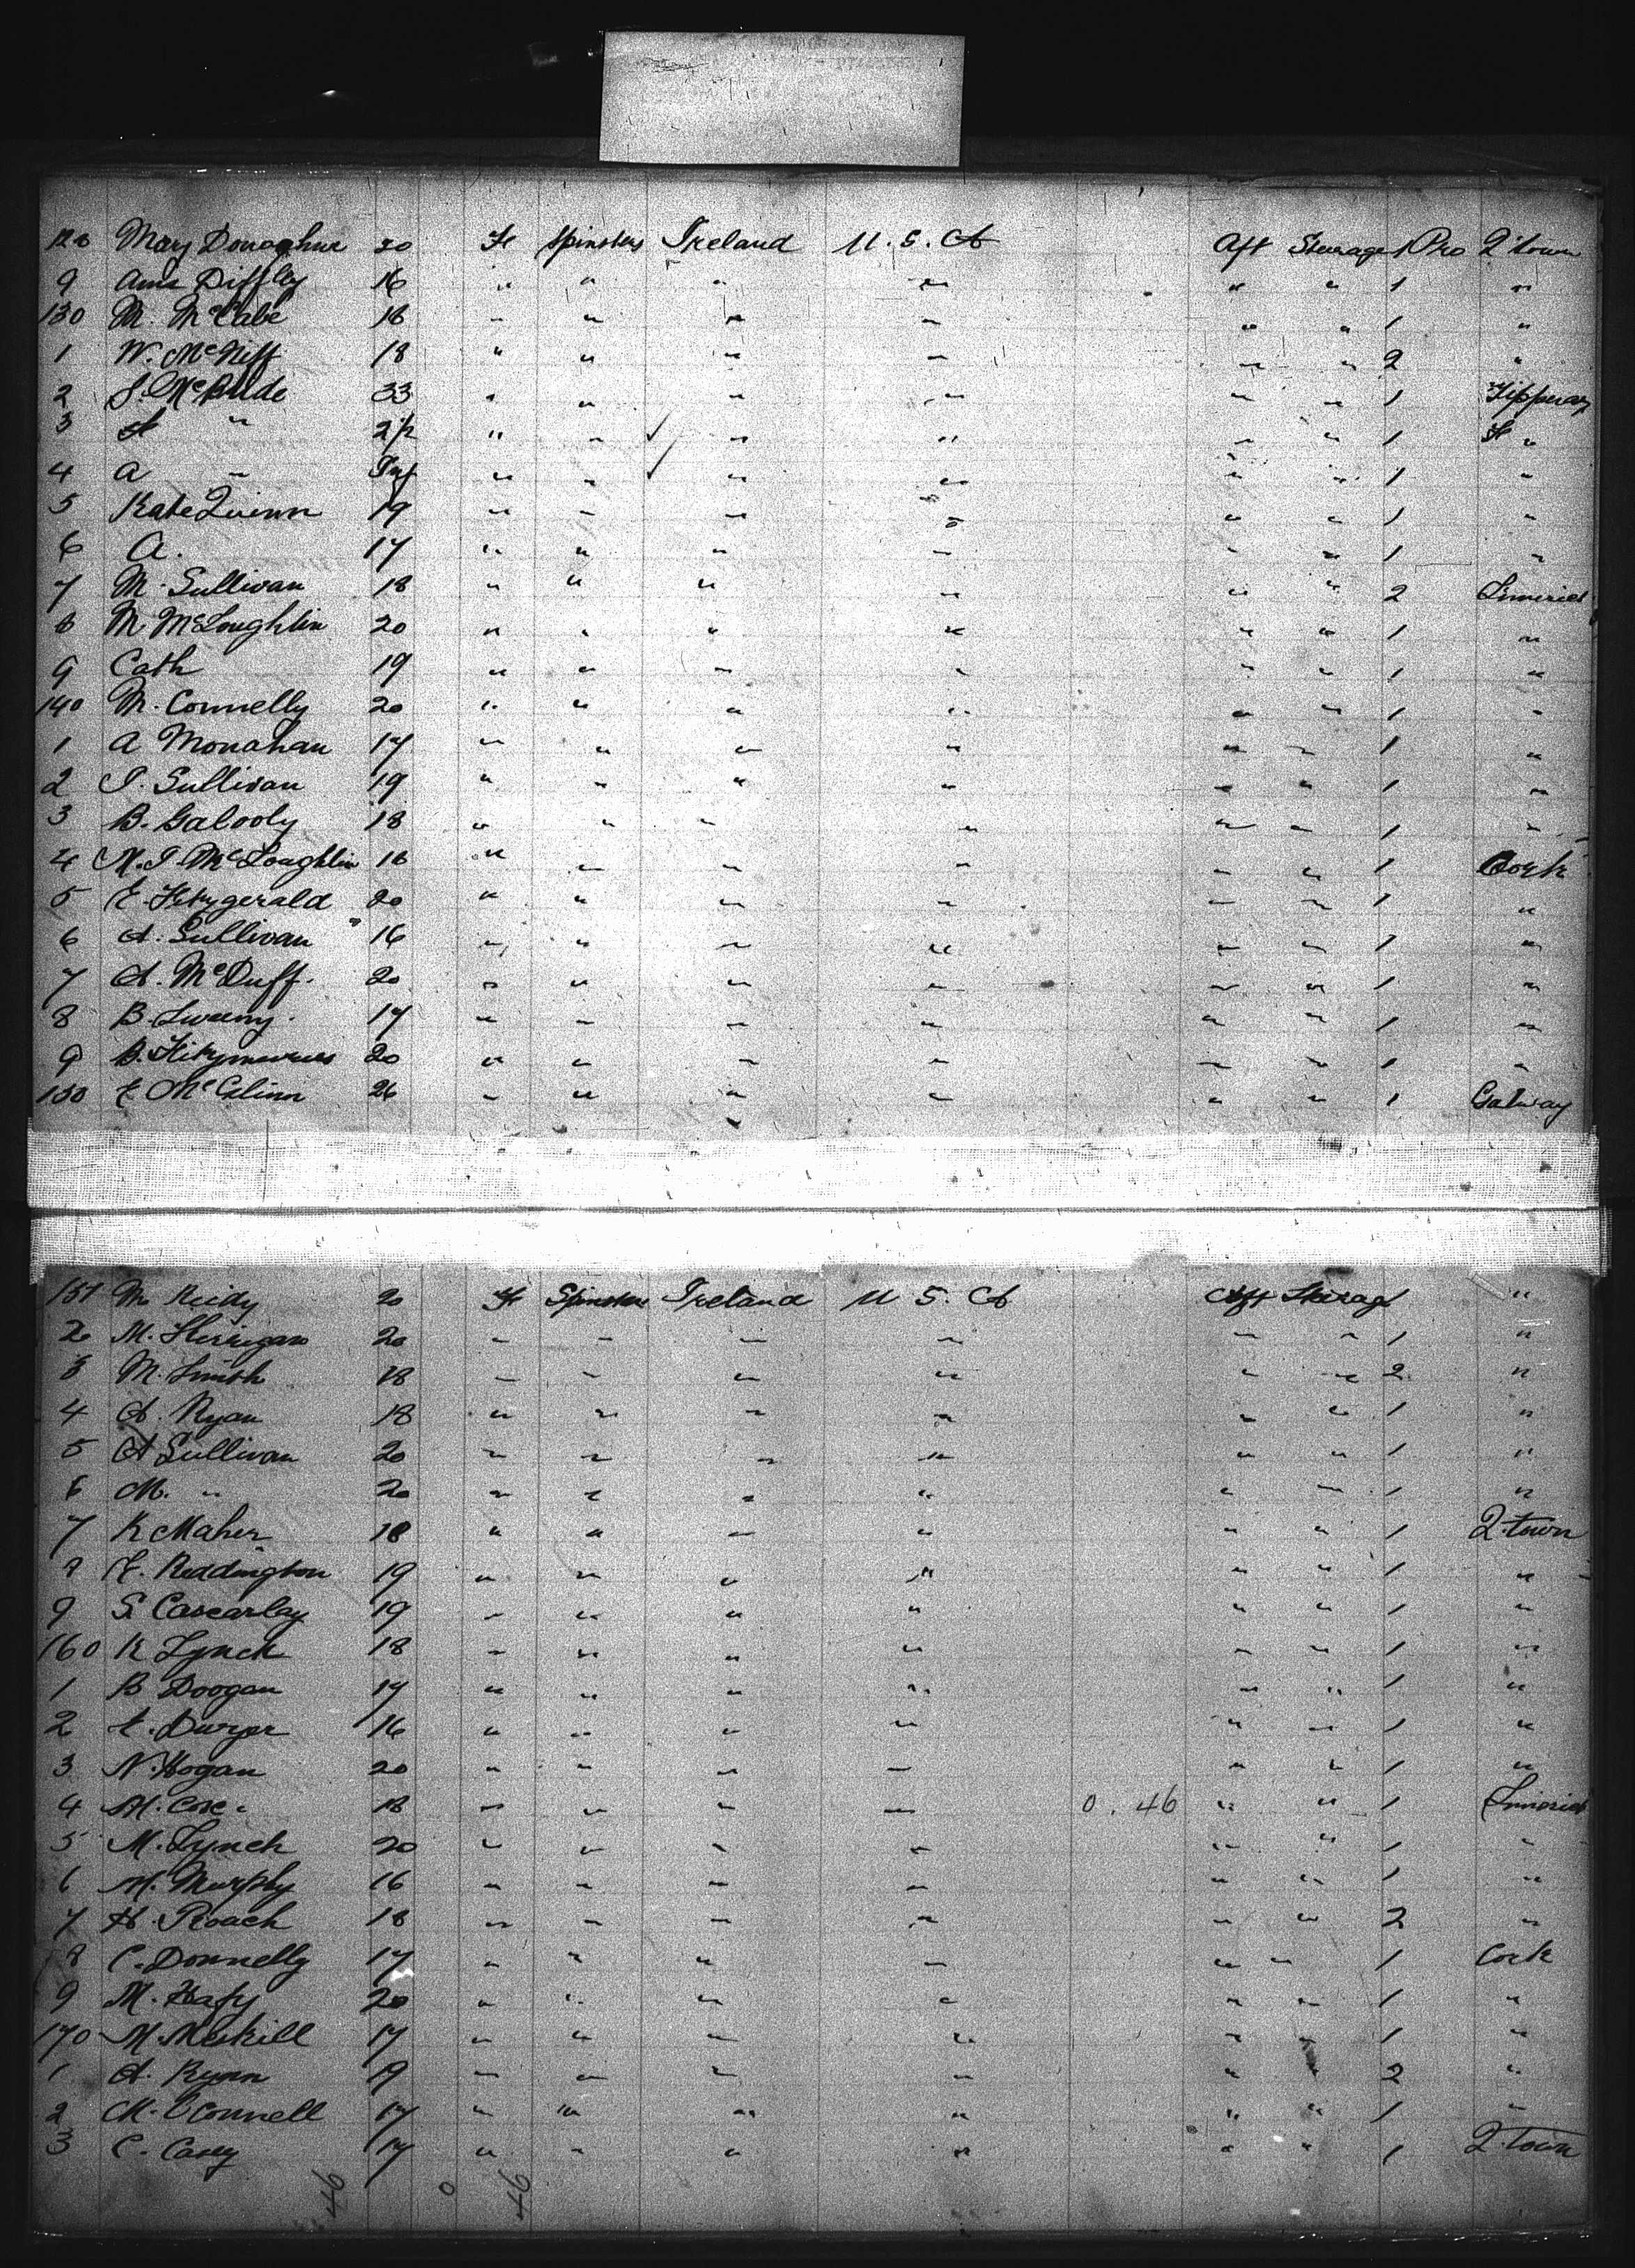 128 Mary Donaghue 20 F Spinsters Ireland U. S. A Aft Steerage 1 Pro Q'town
9 Diffley 16 " " " " " " 1 "
130 M. McCabe 18 " " " " " " 1 "
1 W. McNiff 18 " " " " " " 2 "
2 33 " " " " " " 1 Tipperary
3 " " " " " " " 1 "
4 a " Inf " " " " " " 1 "
5 Kate Quinn 19 " " " " " " 1 "
6 A. 17 " " " " " " 1 "
7 M. Sullivan 18 " " " " " " 2 Limerick
8 M McLoughlin 20 " " " " " " 1 "
9 Cath 19 " " " " " " 1 "
140 M. Connelly 20 " " " " " " 1 "
1 A Monahan 17 " " " " " " 1 "
2 Sullivan 19 " " " " " " 1 "
3 B. 18 " " " " " " 1 "
4 McLoughlin 18 " " " " " " 1 Cork
5 E. Fitzgerald 20 " " " " " " 1 "
6 A. Sullivan 16 " " " " " " 1 "
7 A. McDuff 20 " " " " " " 1 "
8 B. Sweeny 17 " " " " " " 1 "
9 B. 20 " " " " " " 1 "
150 E McGlinn 26 " " " " " " 1 Galway
151 M Reidy 20 F Spinsters Ireland U S. A Aft Steerage 1 "
2 M. 20 " " " " " " 1 "
3 M. Smith 18 " " " " " " 2 "
4 A. Ryan 18 " " " " " " 1 "
5 A Sullivan 20 " " " " " " 1 "
6 M. " 20 " " " " " " 1 "
7 K Maher 18 " " " " " " 1 Q. town
8 Reddington 19 " " " " " " 1 "
9 S. 19 " " " " " " 1 "
160 K Lynch 18 " " " " " " 1 "
1 B Doogan 17 " " " " " " 1 "
2 Dwyer 16 " " " " " " 1 "
3 N. Hogan 20 " " " " " " 1 "
4 M. 18 " " " " 0. 46 " " 1 Limerick
5 M. Lynch 20 " " " " " " 1 "
6 M. Murphy 16 " " " " " " 1 "
7 H. Roach 18 " " " " " " 2 "
8 C. Donnelly 17 " " " " " " 1 Cork
9 M. 20 " " " " " " 1 "
170 M. Meskill 17 " " " " " " 1 "
1 A. Rynn 19 " " " " " " 2 "
2 M. OConnell 17 " " " " " " 1 "
3 C. Casey 17 " " " " " " 1 Q. town
46 0 46